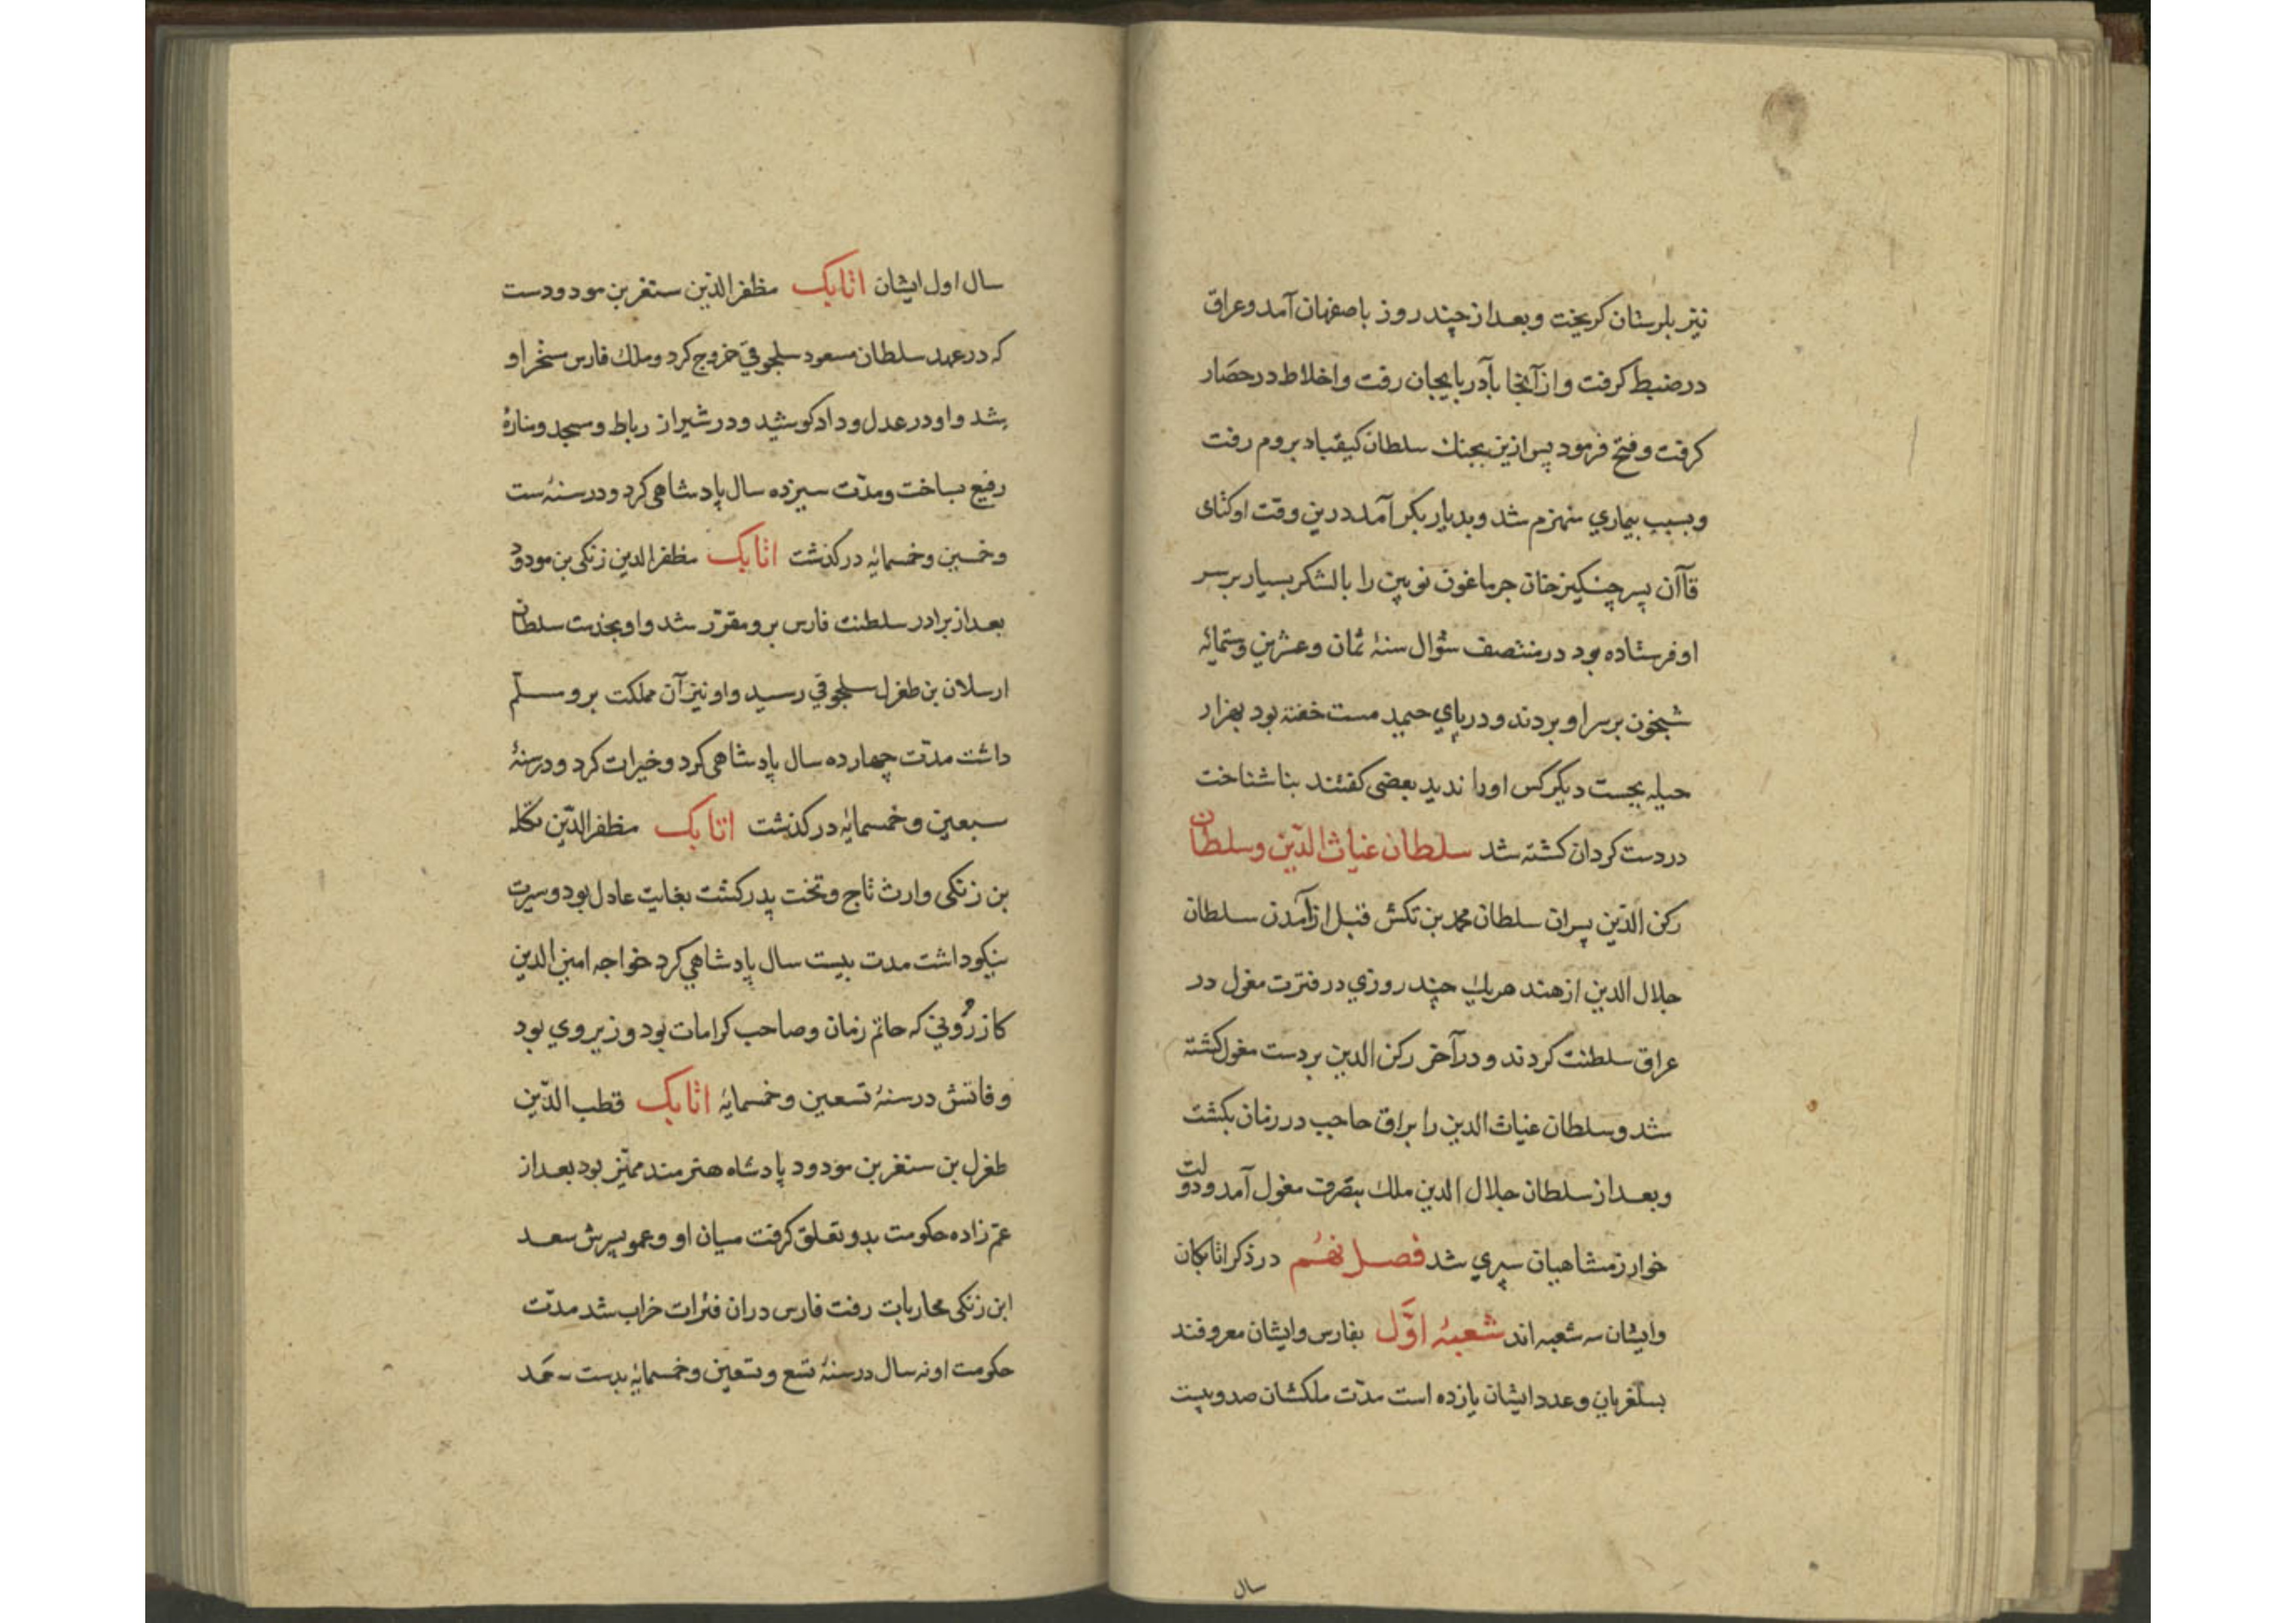 نیز بلرستان کریخت وبعد از چند روز باصفهان آمد وعراق
در ضبط کرفت واز آنجا بآدربایجان رفت واخلاط در حصار
کرفت وفتح فرمود پس ازین بجنك سلطان کیقباد بروم رفت
وبسبب بیماري منهزم شد وبدیار بکر آمد درین وقت اوکتای
قاآن پسر چنکیز خان جرماغون نویین را با لشکر بسیار بر سر
او فرستاده بود در منتصف شوال سنۀ ثمان وعشرین وستمائه
شبخون بر سر او بردند و در پاي حیمه مست خفته بود بهزار
حیله بجست دیکر کس اورا ندید بعضی کفتند بناشناخت
در دست کردان کشته شد سلطان غیاث الدّین وسلطان
رکن الدّین پسران سلطان محمد بن تکش قبل از آمدن سلطان
جلال الدین از هند هریك چند روزي در فترت مغول در
عراق سلطنت کردند و در آخر رکن الدین بر دست مغول کشته
شد وسلطان غیاث الدین را براق حاجب در زمان بکشت
وبعد از سلطان جلال الدین ملك بتصرف مغول آمد ودولت
خوارزمشاهیان سپري شد فصل نهُم در ذکر اتابکان
وایشان سه شعبه اند شعبۀ اوَّل بفارس وایشان معروفند
بسلغریان وعدد ایشان یازده است مدّت ملکشان صد وبیست
سال
سال اول ایشان اتابک مظفر الدّین سنغر بن مودودست
که در عهد سلطان مسعود سلجوقي خروج کرد وملك فارس مسخّر او
شد واو در عدل وداد کوشید ودر شیراز رباط ومسجد ومنارۀ
رفیع بساخت ومدّت سیزده سال پادشاهی کرد ودر سنۀ ست
وخمسین وخمسمایه در کذشت اتابک مظفر الدین زنکی بن مودود
بعد از برادر سلطنت فارس برو مقرّر شد واو بخدمت سلطان
ارسلان بن طغرل سلجوقي رسید واو نیز آن مملکت برو مسلّم
داشت مدّت چهارده سال پادشاهی کرد وخیرات کرد ودر سنۀ
سبعین وخمسمایه در کذشت اتابک مظفر الدّین تکله
بن زنکی وارث تاج وتخت پدر کشت بغایت عادل بود وسیرت
نیکو داشت مدت بیست سال پادشاهي کرد خواجه امین الدین
کازرُوني که حاتم زمان وصاحب کرامات بود وزیر وي بود
وفاتش در سنۀ تسعین وخمسمایۀ اتابک قطب الدّین
طغرل بن سنغر بن مودود پادشاه هنرمند ممیّز بود بعد از
عم زاده حکومت بدو تعلق کرفت میان او وعمو پسرش سعد
ابن زنکی محاربات رفت فارس دران فترات خراب شد مدّت
حکومت او نه سال در سنۀ تسع وتسعین وخمسمایه بدست